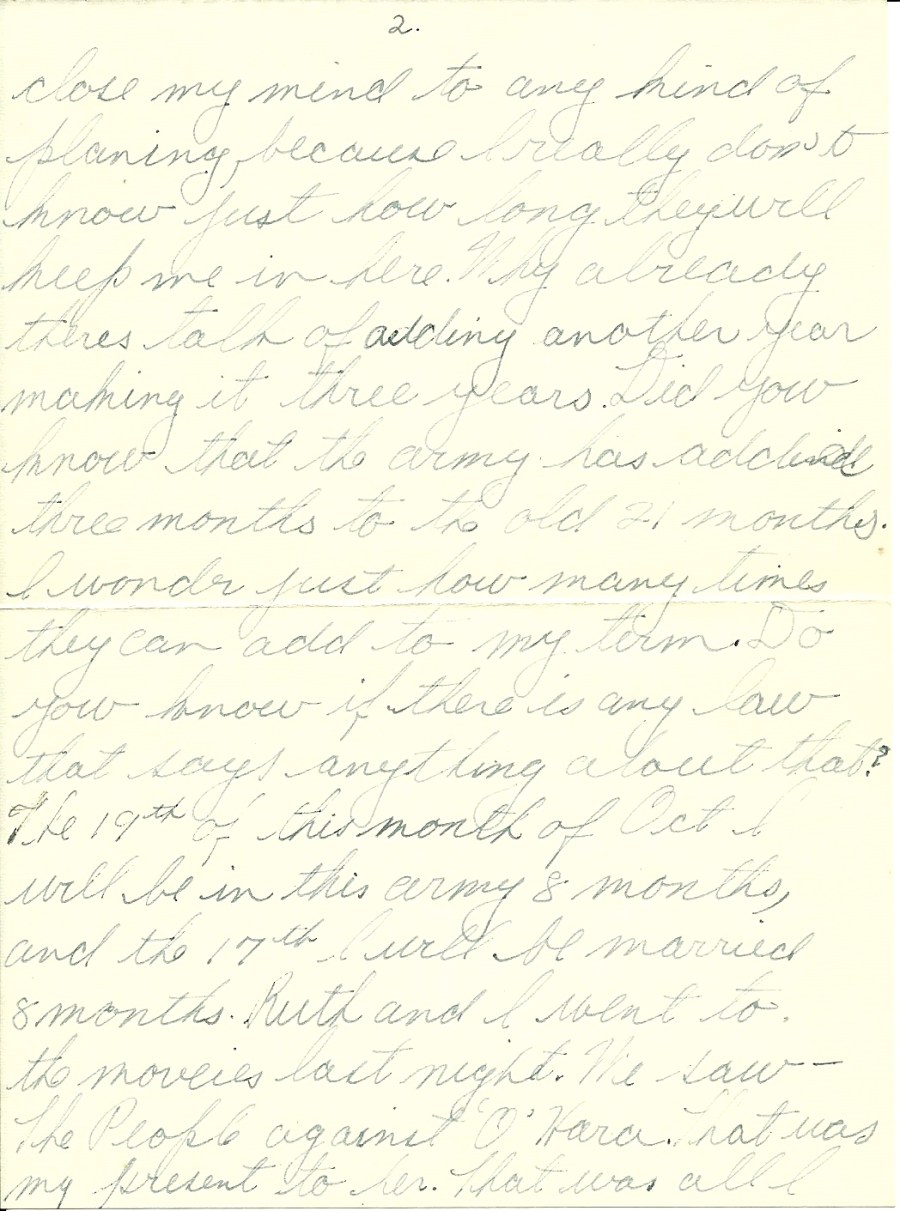 2.
close my mind to any kind of
planing, because I really don't
know just how long they will
keep me in here. Why already
theres talk of adding another year
making it three years. Did you
know that the army has added
three months to the old 21 months.
I wondr just how many times
they can add to my term. Do
you know if there is any law
that says anything about that?
The 19th of this month of Oct I
will be in this army 8 months,
and the 17th I will be married
8 months. Ruth and I went to
the moveies last night. We saw —
The People against 'O' Hara. That was
my present to her. That was all I